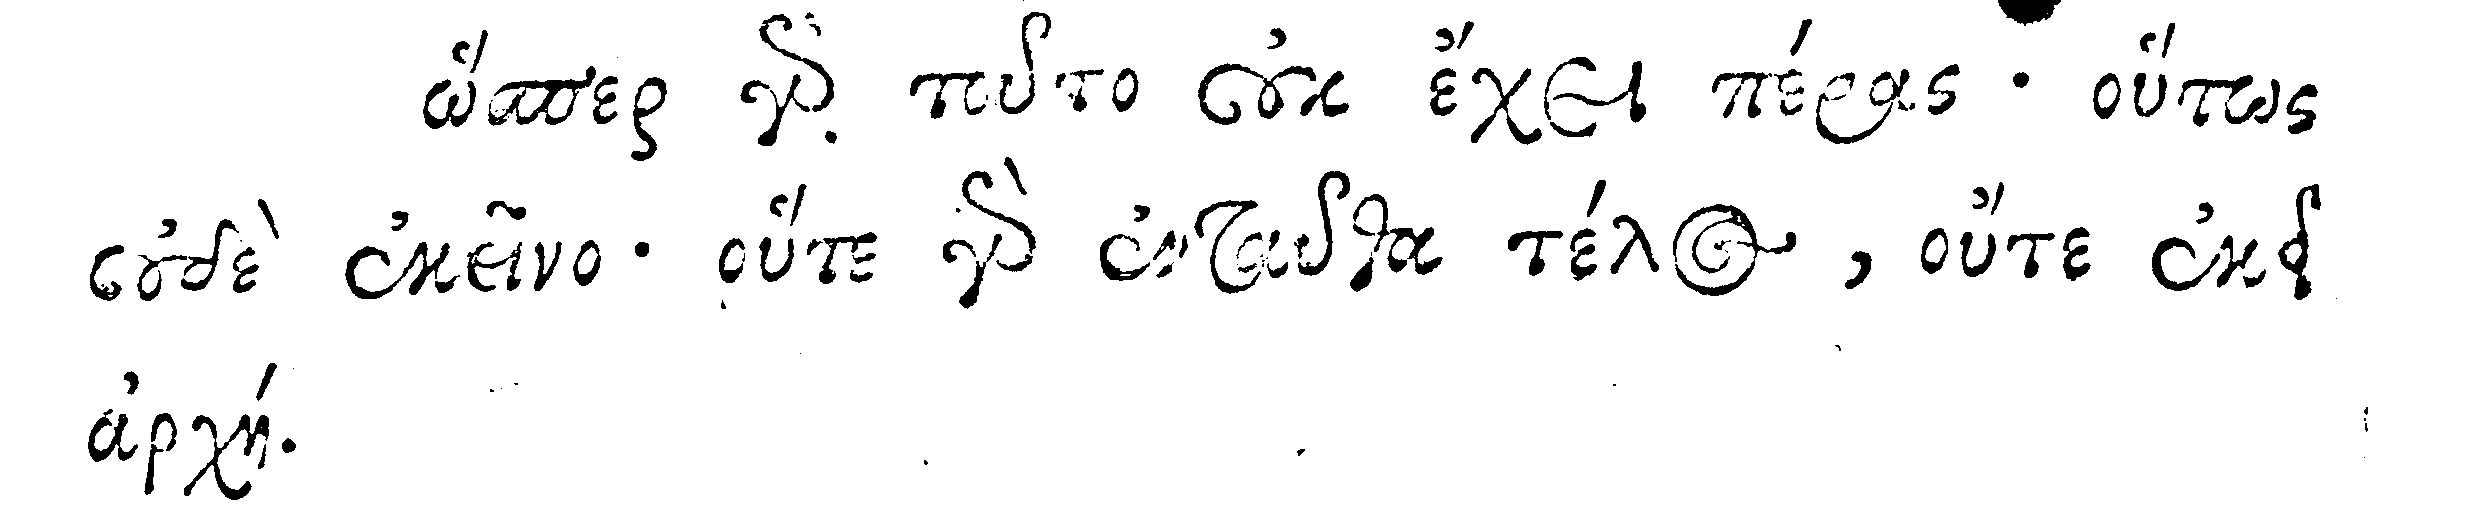 ὥσπερ γὰρ τοῦτο οὐκ ἔχει πέρας · οὕτως
οὐδὲ ἐκεῖνο · οὔτε γὰρ ἐνταῦθα τέλος , οὔτε ἐκεῖ
ἀρχή.